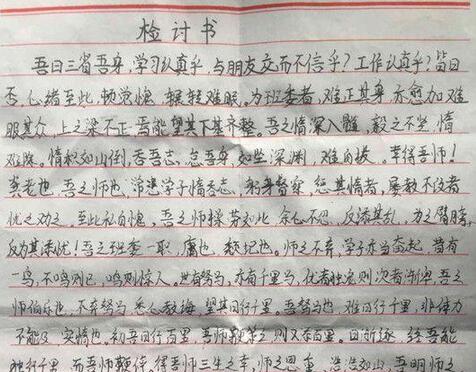 检讨书
吾日三省吾身，学习认真乎，与朋友交而不信乎？工作认真乎？皆曰
否。心绪至此，顿觉愧，辗转难眠。为班委者，难正其身，亦愈加难
服其众，上之梁不正，焉能望其下基齐整。吾之情深入髓，毅之不坚，情
难除，惰积如山倒，吞吾志，怠吾身，如坠深渊，难自拔。幸得吾师！
龚老也，吾之师也，常逢学子惰吾志，躬来督察，惩其惰者，屡教不改者
忧之劝之。至此私自愧。吾之师操劳如此，余心不忍，反添其乱，为之臂膀，
反为其添忧！吾之班委一职，庸也，耗也。师之不弃，学子亦当奋起，昔有
一鸟，不鸣则已，鸣则惊人。世有驽马，亦有千里马，优者独行则次者滞，吾之
师伯乐也，不弃驽马，悉心教诲，望其日行千里。吾驽马也，难日行千里，非体力
不能及，实惰也。初吾日行百里，吾师鞭策之则又添百里。日渐逐，终吾能
独行千里，而吾师鞭倦。得吾师三生之幸，师之恩重，浩浩如山，吾明师之